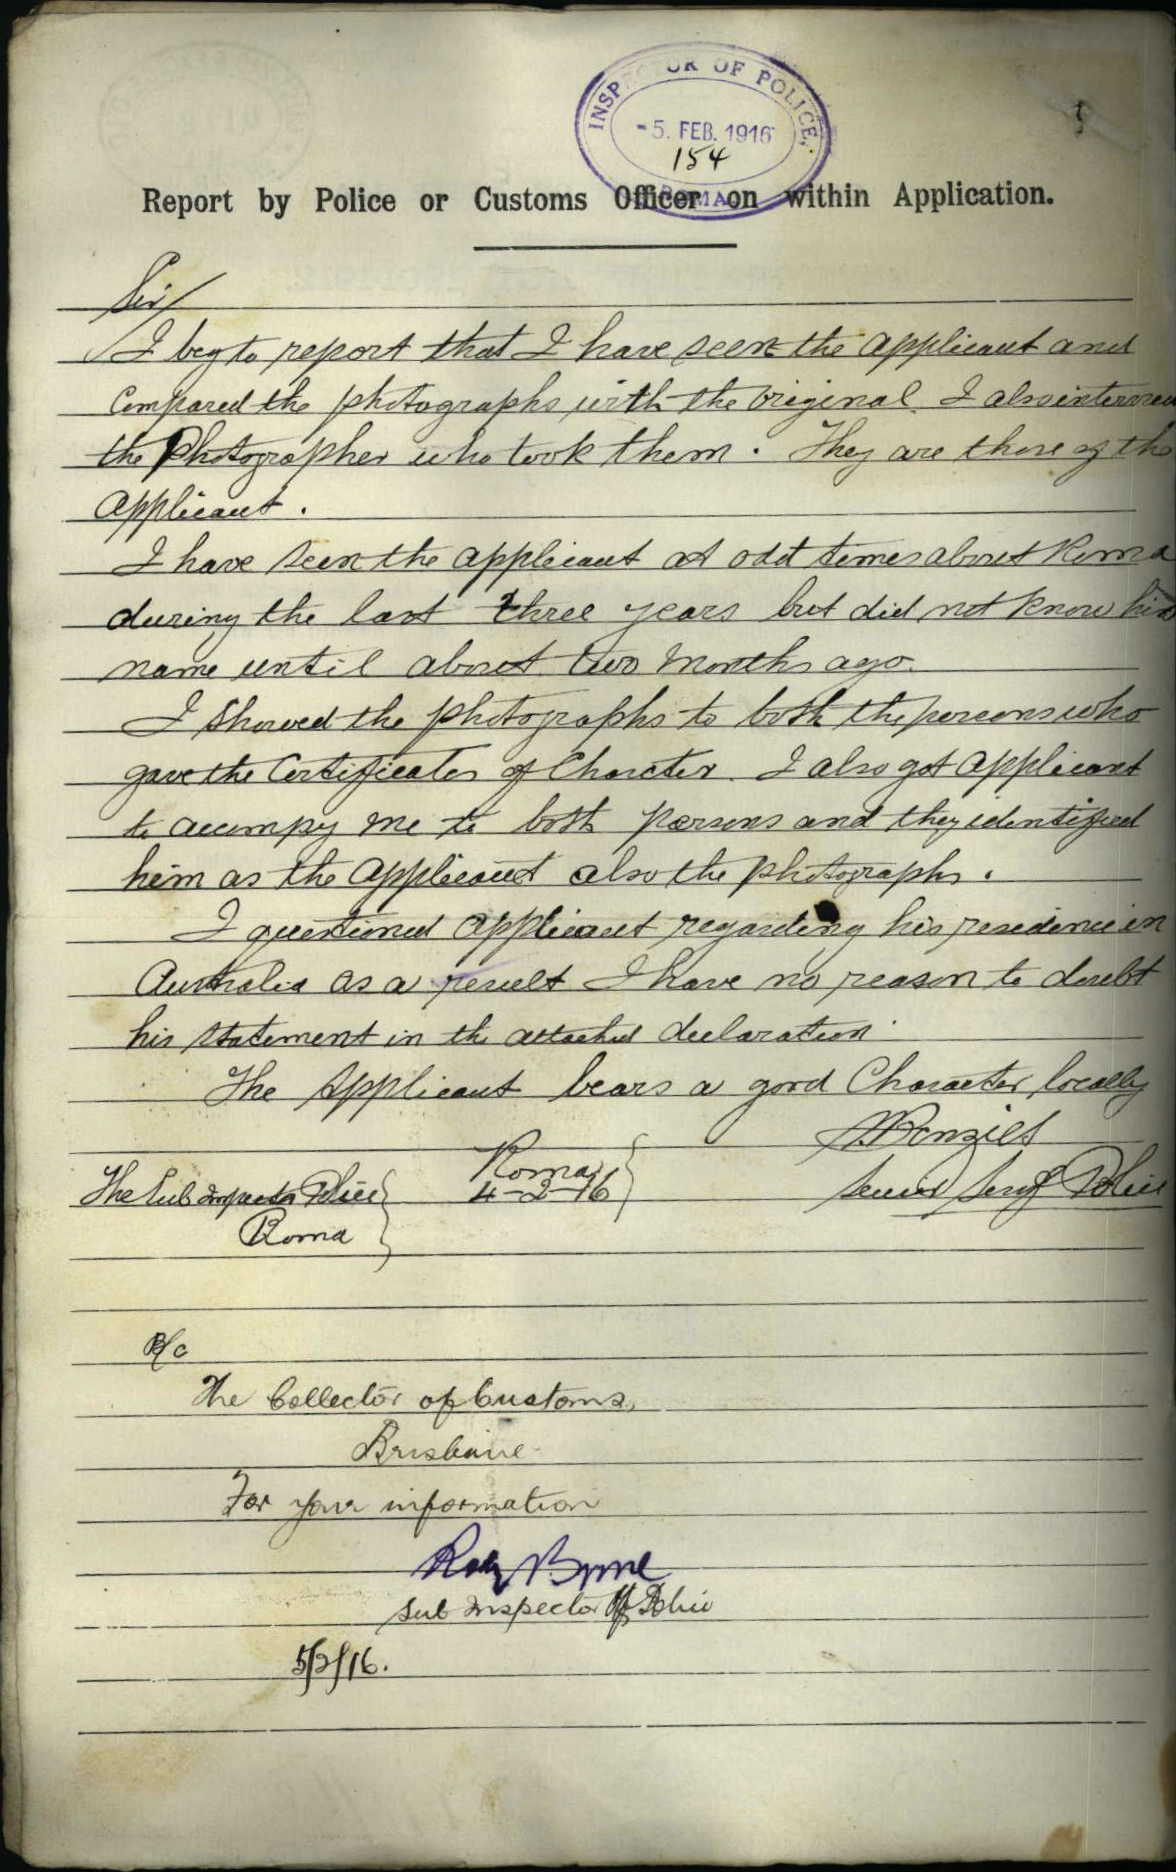 INSPECTOR OF POLICE,
-5. FEB. 1916
154
ROMA
Report by Police or Customs Officer on within Application.
Sir/
I beg to report that I have seen the applicant and
Compared the photographs with the original. I also
the Photographer who took them. They are those of the
applicant.
I have seen the applicant at odd times about Roma
during the last three years but did not know his
name until about two months ago.
I showed the photographs to both the persons who
gave the Certificates of Charcter. I also got applicant
to accompy me to both persons and they identified
him as the applicant also the photographs.
I questioned applicant regarding his residence in
Australia as a result I have no reason to doubt
his statement in the attached declaration.
The Applicant bears a good Character locally
Senior Sergt Police
Roma
4-2-16
The Sub Inspector Police
Roma
B/C
The Collector of Customs,
Brisbane
For your information
Byrne
Sub Inspector of Police
5/2/16.